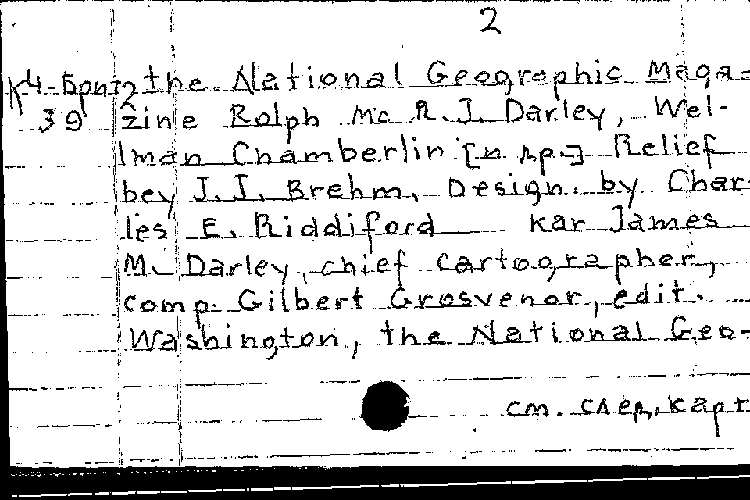 2
К4-Брит the National Geographic Maga=
39 zine Ralph Mc R.I. Darley, Wel-
lman Chamberlin [и др.] Relief
bey J.J. Brehm, Design. by Char-
les E. Riddiford kar James
M. Darley, chief cartographer,
comp. Gilbert Grosvenor, edit.
Washington, the National Geo-
см. след. карт